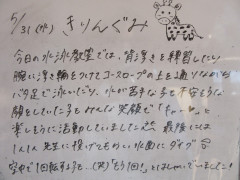 5/31(水) きりんぐみ
今日の水泳教室では、背浮きを練習したり
腕に浮き輪をつけてコースロープの上を通りながら
バタ足で泳いでいたり、水が苦手な子も不安そうな
顔をしていた子もみんな笑顔で「キャーッ」と
楽しそうに活動していました。最後には
1人1人先生に投げてもらい水面にダイブ
空中で1回転する子も…(笑)「もう1回!」とはしゃいでいました!